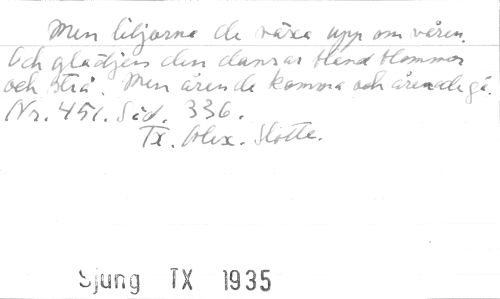 Men liljorna de växa upp om våren.
Och glädjen den dansar bland blommor
och strå. Men årende komma och årende gå.
Nr. 451. Sid. 336.
Tx. Alex. Slotte.
Sjung TX 1935